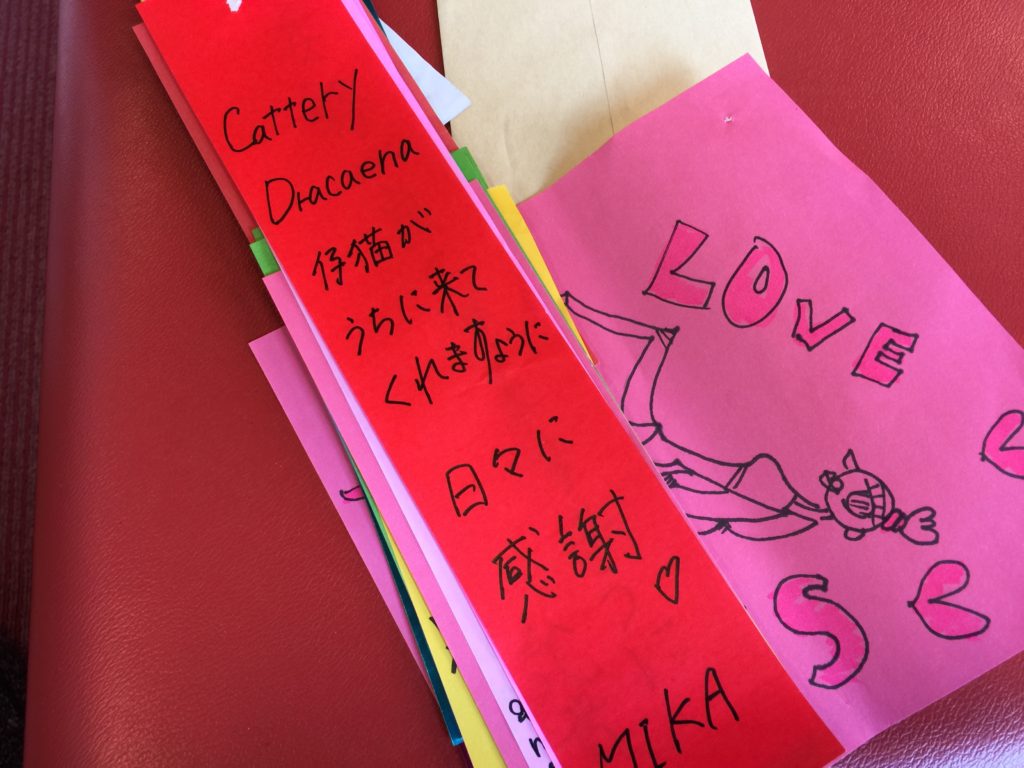 Cattery
Dracaena
仔猫が
うちに来て
くれますように
日々に
感謝♡
MIKA
LOVE
S